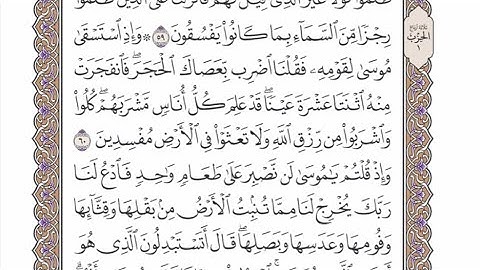 ظَلَمُوا۟ قَوْلًا غَيْرَ ٱلَّذِى قِيلَ لَهُمْ فَأَنزَلْنَا عَلَى ٱلَّذِينَ ظَلَمُوا۟
رِجْزًا مِّنَ ٱلسَّمَآءِ بِمَا كَانُوا۟ يَفْسُقُونَ ٥٩ ۞ وَإِذِ ٱسْتَسْقَىٰ
مُوسَىٰ لِقَوْمِهِۦ فَقُلْنَا ٱضْرِب بِّعَصَاكَ ٱلْحَجَرَ ۖ فَٱنفَجَرَتْ
مِنْهُ ٱثْنَتَا عَشْرَةَ عَيْنًا ۖ قَدْ عَلِمَ كُلُّ أُنَاسٍ مَّشْرَبَهُمْ ۖ كُلُوا۟
وَٱشْرَبُوا۟ مِن رِّزْقِ ٱللَّهِ وَلَا تَعْثَوْا۟ فِى ٱلْأَرْضِ مُفْسِدِينَ ٦٠
وَإِذْ قُلْتُمْ يَٰمُوسَىٰ لَن نَّصْبِرَ عَلَىٰ طَعَامٍ وَٰحِدٍ فَٱدْعُ لَنَا
رَبَّكَ يُخْرِجْ لَنَا مِمَّا تُنۢبِتُ ٱلْأَرْضُ مِنۢ بَقْلِهَا وَقِثَّآئِهَا
وَفُومِهَا وَعَدَسِهَا وَبَصَلِهَا ۖ قَالَ أَتَسْتَبْدِلُونَ ٱلَّذِى هُوَ